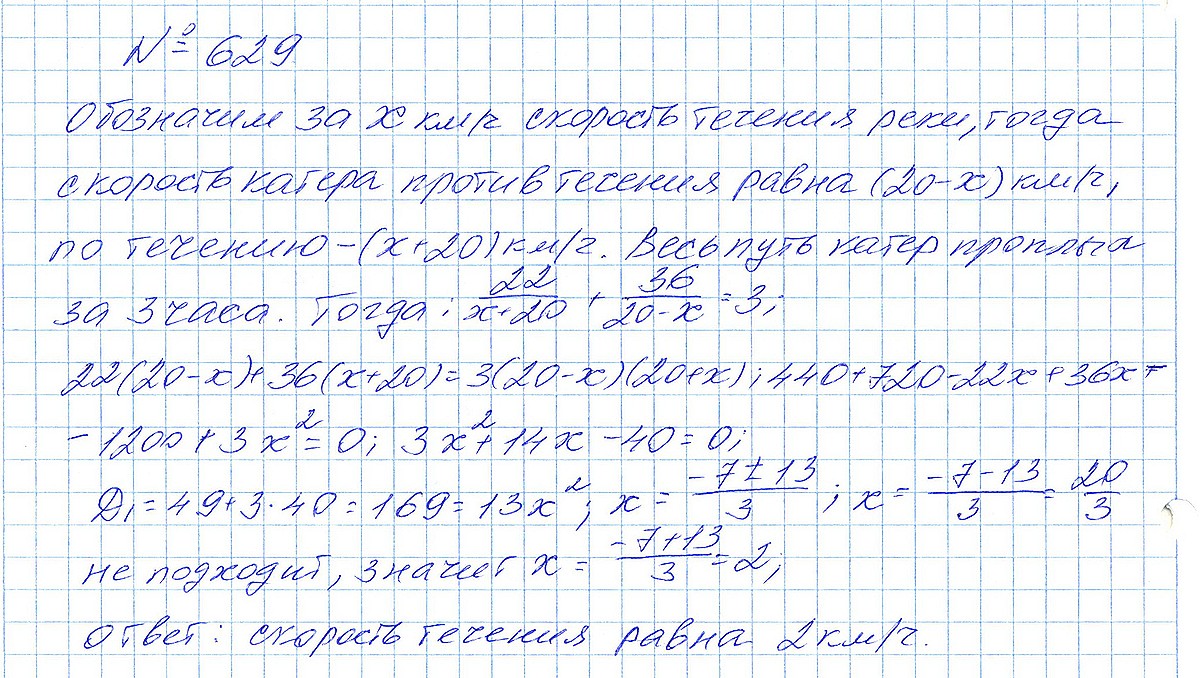 № 629
Обозначим за x км/ч скорость течения реки, тогда
скорость катера против течения равна (20-x) км/ч,
по течению - (x+20) км/ч. Весь путь катер проплыл
за 3 часа. Тогда: 22/(x+20) + 36/(20-x) = 3;
22(20-x)+36(x+20)=3(20-x)(20+x); 440+720-22x+36x-
-1200+3x²=0; 3x²+14x-40=0;
D₁=49+3·40=169=13x²; x = (-7±13)/3; x = (-7-13)/3 = 20/3
не подходит, значит x = (-7+13)/3 = 2;
Ответ: скорость течения равна 2 км/ч.